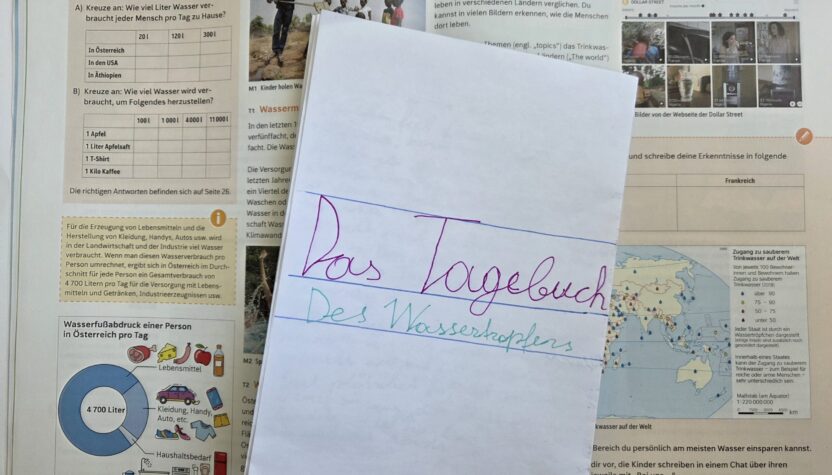 A) Kreuze an: Wie viel Liter Wasser ver-
braucht jeder Mensch pro Tag zu Hause?
20 l 120 l 300 l
In Österreich
In den USA
In Äthiopien
B) Kreuze an: Wie viel Wasser wird ver-
braucht, um Folgendes herzustellen?
100 l 1 000 l 4 000 l 11 000 l
1 Apfel
1 Liter Apfelsaft
1 T-Shirt
1 Kilo Kaffee
Die richtigen Antworten befinden sich auf Seite 26.
Für die Erzeugung von Lebensmitteln und die
Herstellung von Kleidung, Handys, Autos usw. wird
in der Landwirtschaft und der Industrie viel Wasser
verbraucht. Wenn man diesen Wasserverbrauch pro
Person umrechnet, ergibt sich in Österreich im Durch-
schnitt für jede Person ein Gesamtverbrauch von
4 700 Litern pro Tag für die Versorgung mit Lebens-
mitteln und Getränken, Industrieerzeugnissen usw.
Wasserfußabdruck einer Person
in Österreich pro Tag
Lebensmittel
4 700 Liter
Kleidung, Handy,
Auto, etc.
Haushaltsbedarf
M1 Kinder holen Wa
T1 Wasserm
In den letzten 1
verfünffacht, d
facht. Die Wass
Die Versorgu
letzten Jahre
ein Viertel de
Waschen od
Wasser in d
schaft Wass
Klimawand
M2 Sp
T2 W
Das Tagebuch
Des Wassertropfens
leben in verschiedenen Ländern verglichen. Du
kannst in vielen Bildern erkennen, wie die Menschen
dort leben.
Themen (engl. „topics“) das Trinkwas-
ändern („The world“)
DOLLAR STREET
Bilder von der Webseite der Dollar Street
und schreibe deine Erkenntnisse in folgende
Frankreich
Zugang zu sauberem
Trinkwasser auf der Welt
Von jeweils 100 Bewohner-
innen und Bewohnern haben
Zugang zu sauberem
Trinkwasser
über 90
75 - 90
50 - 75
unter 50
Jeder Staat ist durch ein
Wassertröpfchen dargestellt
Innerhalb eines Staates
kann der Zugang zu Trink-
wasser – zum Beispiel für
reiche oder arme Menschen –
sehr unterschiedlich sein.
Maßstab (am Äquator)
1 : 220 000 000
km
kwasser auf der Welt
Bereich du persönlich am meisten Wasser einsparen kannst.
dir vor, die Kinder schreiben in einem Chat über ihren